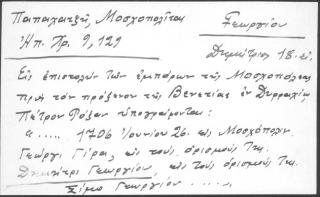 Παπαχατζῆ, Μοσχοπολῖται
Γεωργίου
Ἠπ. Χρ. 9, 129
Δημήτριος 18. αἰ.
Εἰς ἐπιστολὴν τῶν ἐμπόρων τῆς Μοσχοπόλεως
πρὸς τὸν πρόξενον τῆς Βενετίας ἐν Δυρραχίῳ
Πέτρον Ρόζαν ὑπογράφονται:
"..... 1706 Ἰουνίου 26. εἰς Μοσχόπολιν
Γεώργι Γίρας εἰς τοὺς ὁρισμούς της.
Δημήτρι Γεωργίου, εἰς τοὺς ὁρισμούς της.
Σίμο Γεωργίου .....,